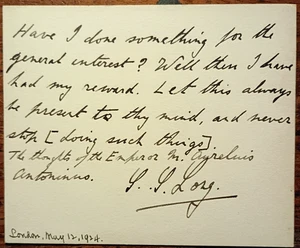 Have I done something for the
general interest? Well then I have
had my reward. Let this always
be present to thy mind, and never
stop [doing such things].
The thoughts of the Emperor M. Aurelius
Antoninus.
London, May 12, 1924.